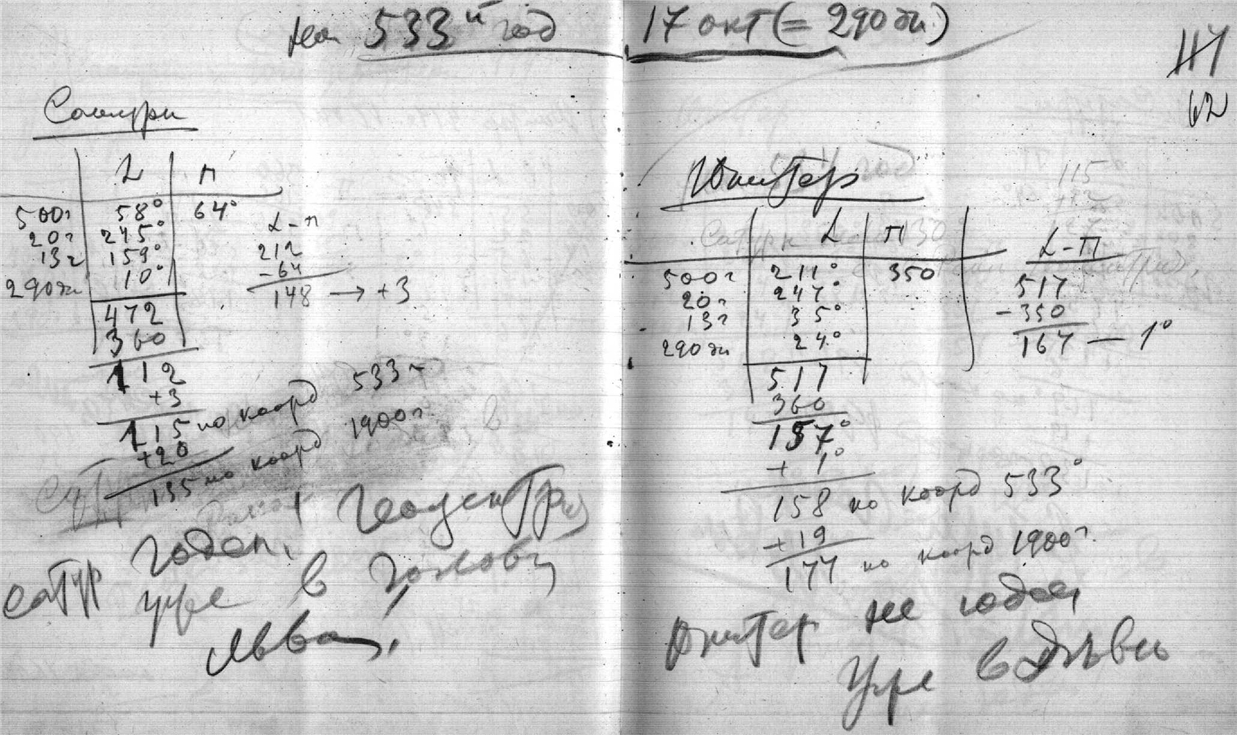 на 533й год 17 окт (= 290 дн)
62
Сатурн
L П
500г 58° 64°
20г 245°
13г 159°
290дн 10°
472
360
112
+3
115 по коорд 533 г
+20
135 по коорд 1900г.
L-П
212
-64
148 → +3
геоцентр
годен.
сатур уже в голову
Льва.
Юпитер
L П
500г 211° 350
20г 247°
13г 35°
290дн 24°
517
360
157°
+1°
158 по коорд 533°
+19
177 по коорд 1900г.
L-П
517
-350
167 — 1°
Юпитер не годен
Уже в Деве